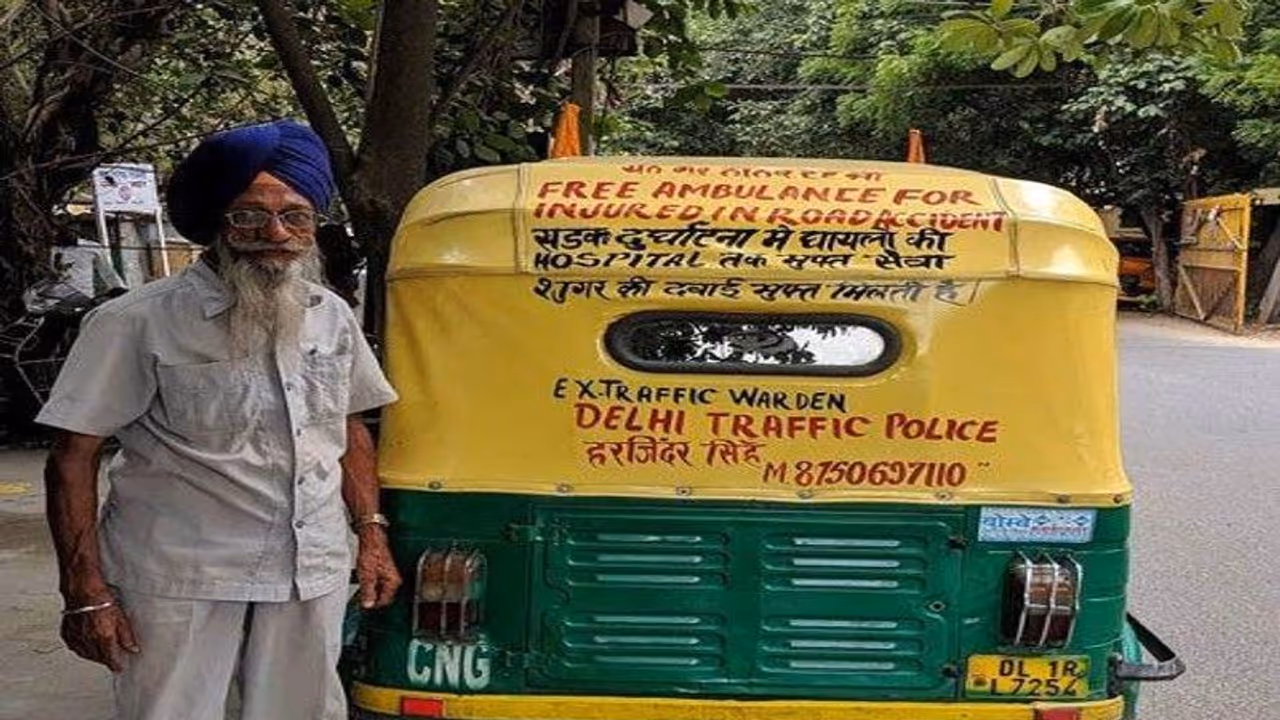 FREE AMBULANCE FOR
INJURED IN ROAD ACCIDENT
सड़क दुर्घटना मे घायलो की
HOSPITAL तक मुफ्त सेवा
शुगर की दवाई मुफ्त मिलती है
EX.TRAFFIC WARDEN
DELHI TRAFFIC POLICE
हरजिंदर सिंह
M. 8750697110
CNG
DL 1R
L 7254